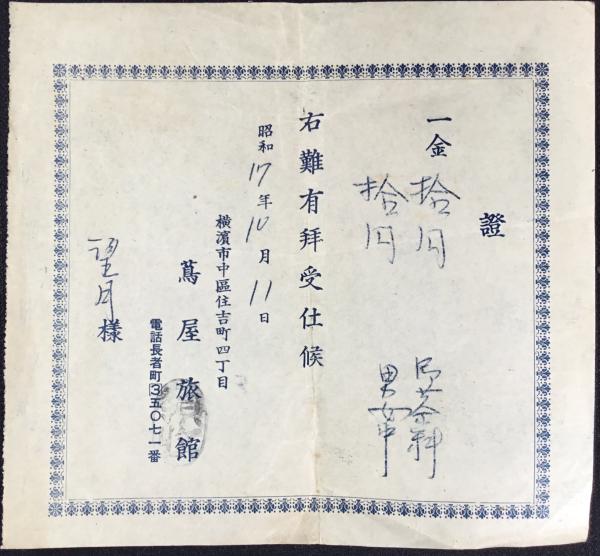 證
一金 拾円 御茶料
拾円 男女中
右難有拜受仕候
昭和17年10月11日
横濱市中區住吉町四丁目
蔦屋旅館
電話長者町③五〇七一番
望月様